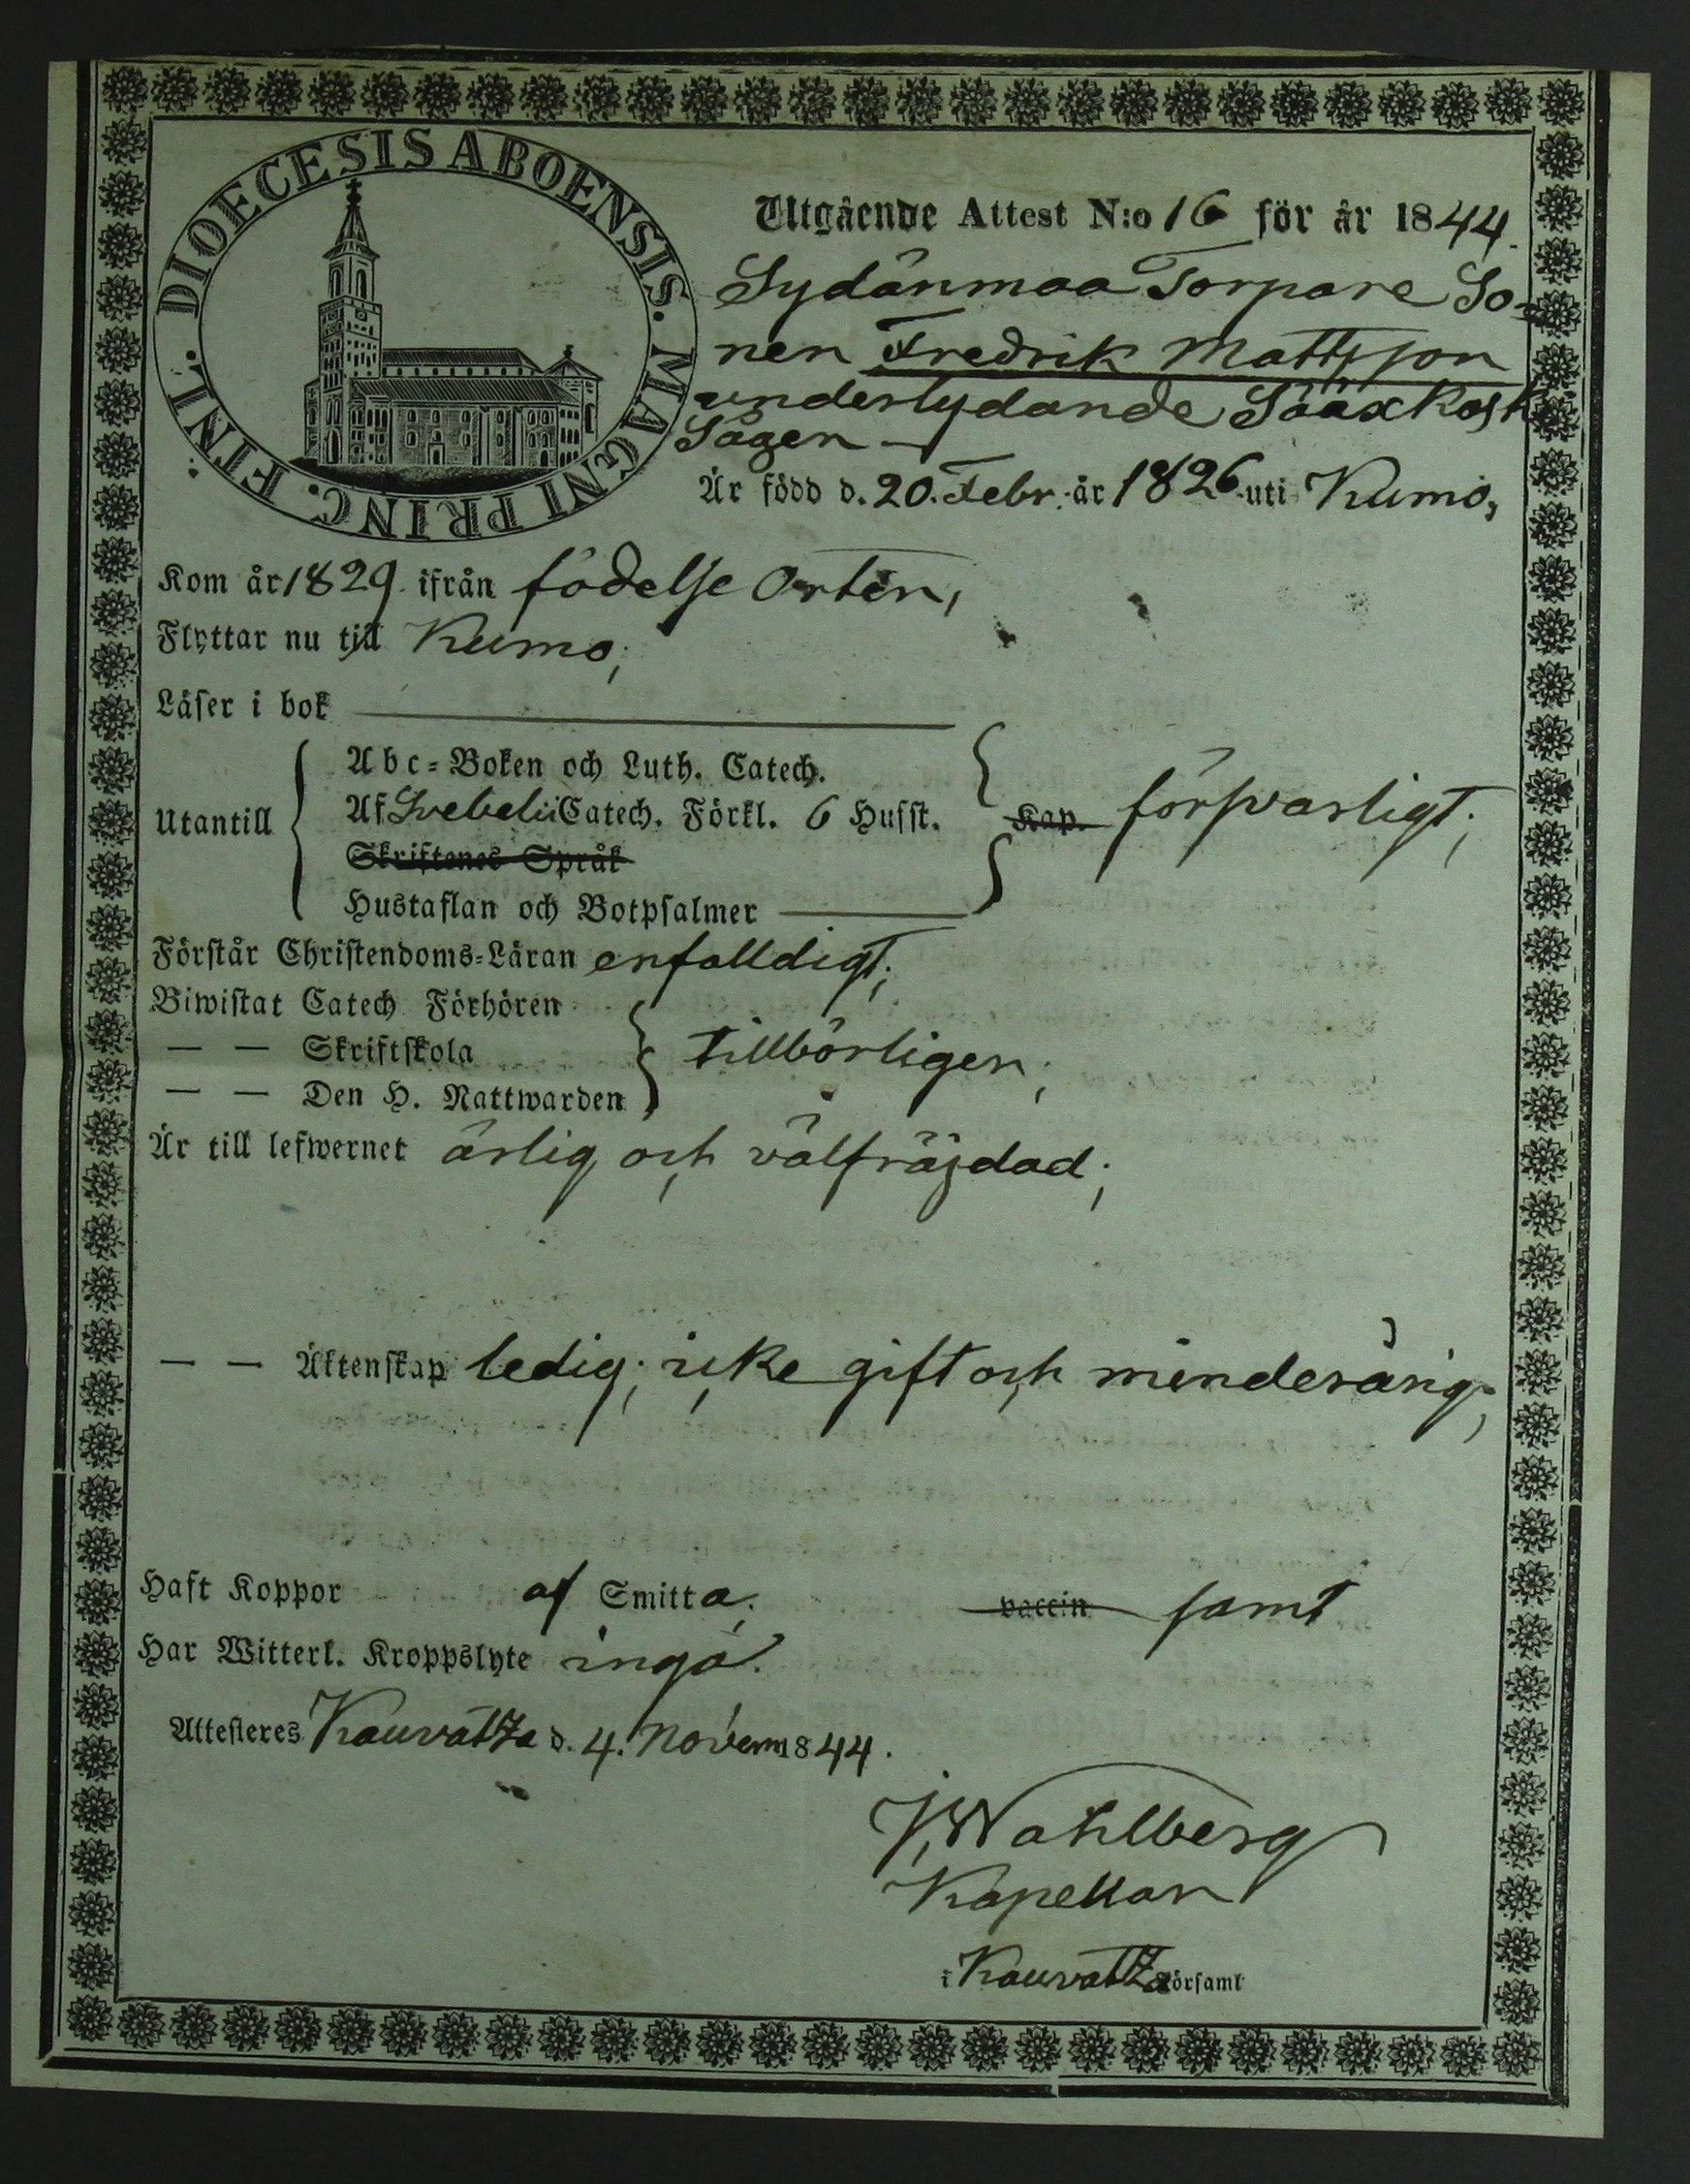 DIOECESIS ABOENSIS. MAGNI PRINC. FINL.
Utgående Attest N:o 16 för år 1844.
Sydänmaa Torpare So-
nen Fredrik Mattsson
underlydande Sääxkosk
Sågen —
Är född d. 20. Febr. år 1826 uti Kumo,
Kom år 1829. ifrån födelse Orten,
Flyttar nu till Kumo;
Läser i bok
Utantill
Abc-Boken och Luth. Catech.
Af Svebelii Catech. Förkl. 6 Hufst. Kap. försvarligt;
Skriftenes Språk
Hustaflan och Botpsalmer
Förstår Christendoms-Läran enfalldigt;
Biwistat Catech Förhören
— — Skriftskola tillbörligen;
— — Den H. Nattwarden
Är till lefwernet ärlig och välfräjdad;
— — Äktenskap ledig; icke gift och minderårig;
Haft Koppor af Smitta; vaccin samt
Har Witterl. Kroppslyte inga.
Attesteres Kauvatza d. 4. Novem 1844.
J. Wahlberg
Kapellan
i Kauvatza Församl